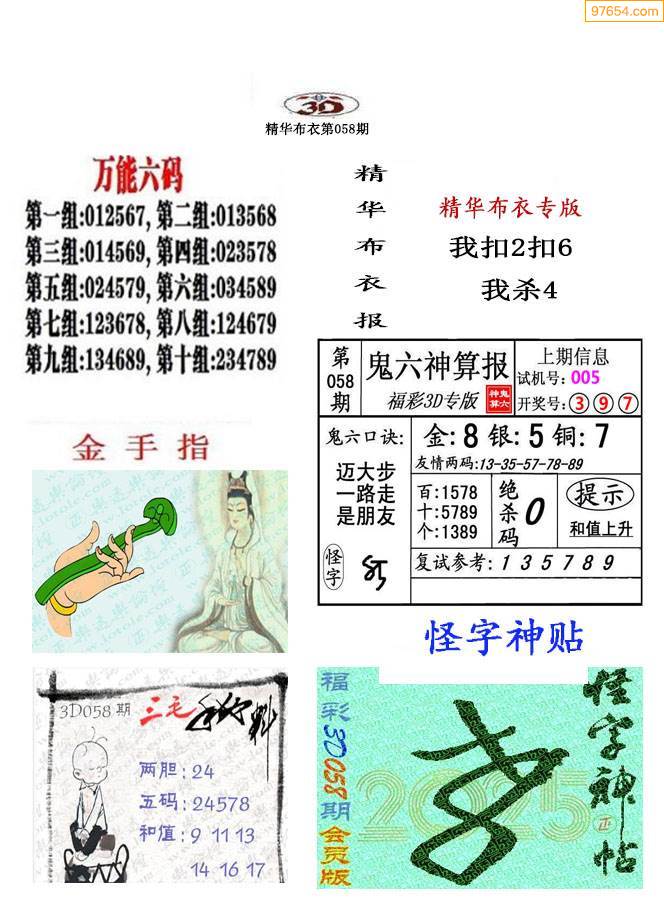 97654.com
3D
精华布衣第058期
万能六码
第一组:012567, 第二组:013568
第三组:014569, 第四组:023578
第五组:024579, 第六组:034589
第七组:123678, 第八组:124679
第九组:134689, 第十组:234789
精华布衣报
精华布衣专版
我扣2扣6
我杀4
第058期
鬼六神算报
福彩3D专版
鬼六神算
上期信息
试机号:005
开奖号:③⑨⑦
鬼六口诀:
迈大步
一路走
是朋友
金:8 银:5 铜:7
友情两码:13-35-57-78-89
百:1578
十:5789
个:1389
绝杀码
0
提示
和值上升
怪字
复试参考: 1 3 5 7 8 9
金手指
怪字神贴
3D058期
三毛
两胆: 24
五码: 24578
和值: 9 11 13
14 16 17
福彩3D058期会员版
2025
怪字神帖